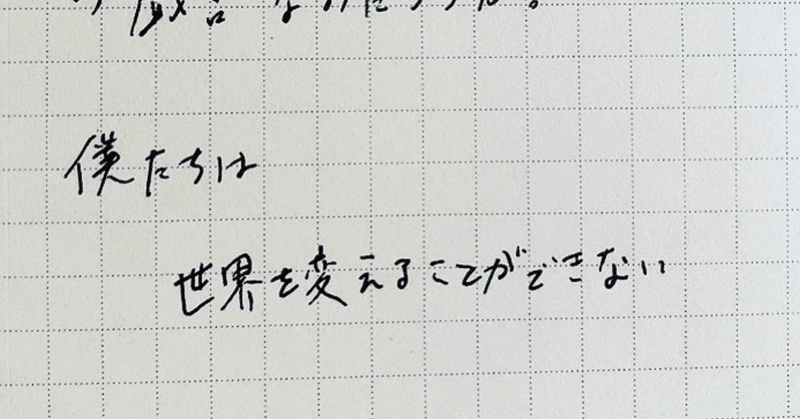 僕たちは
世界を変えることができない